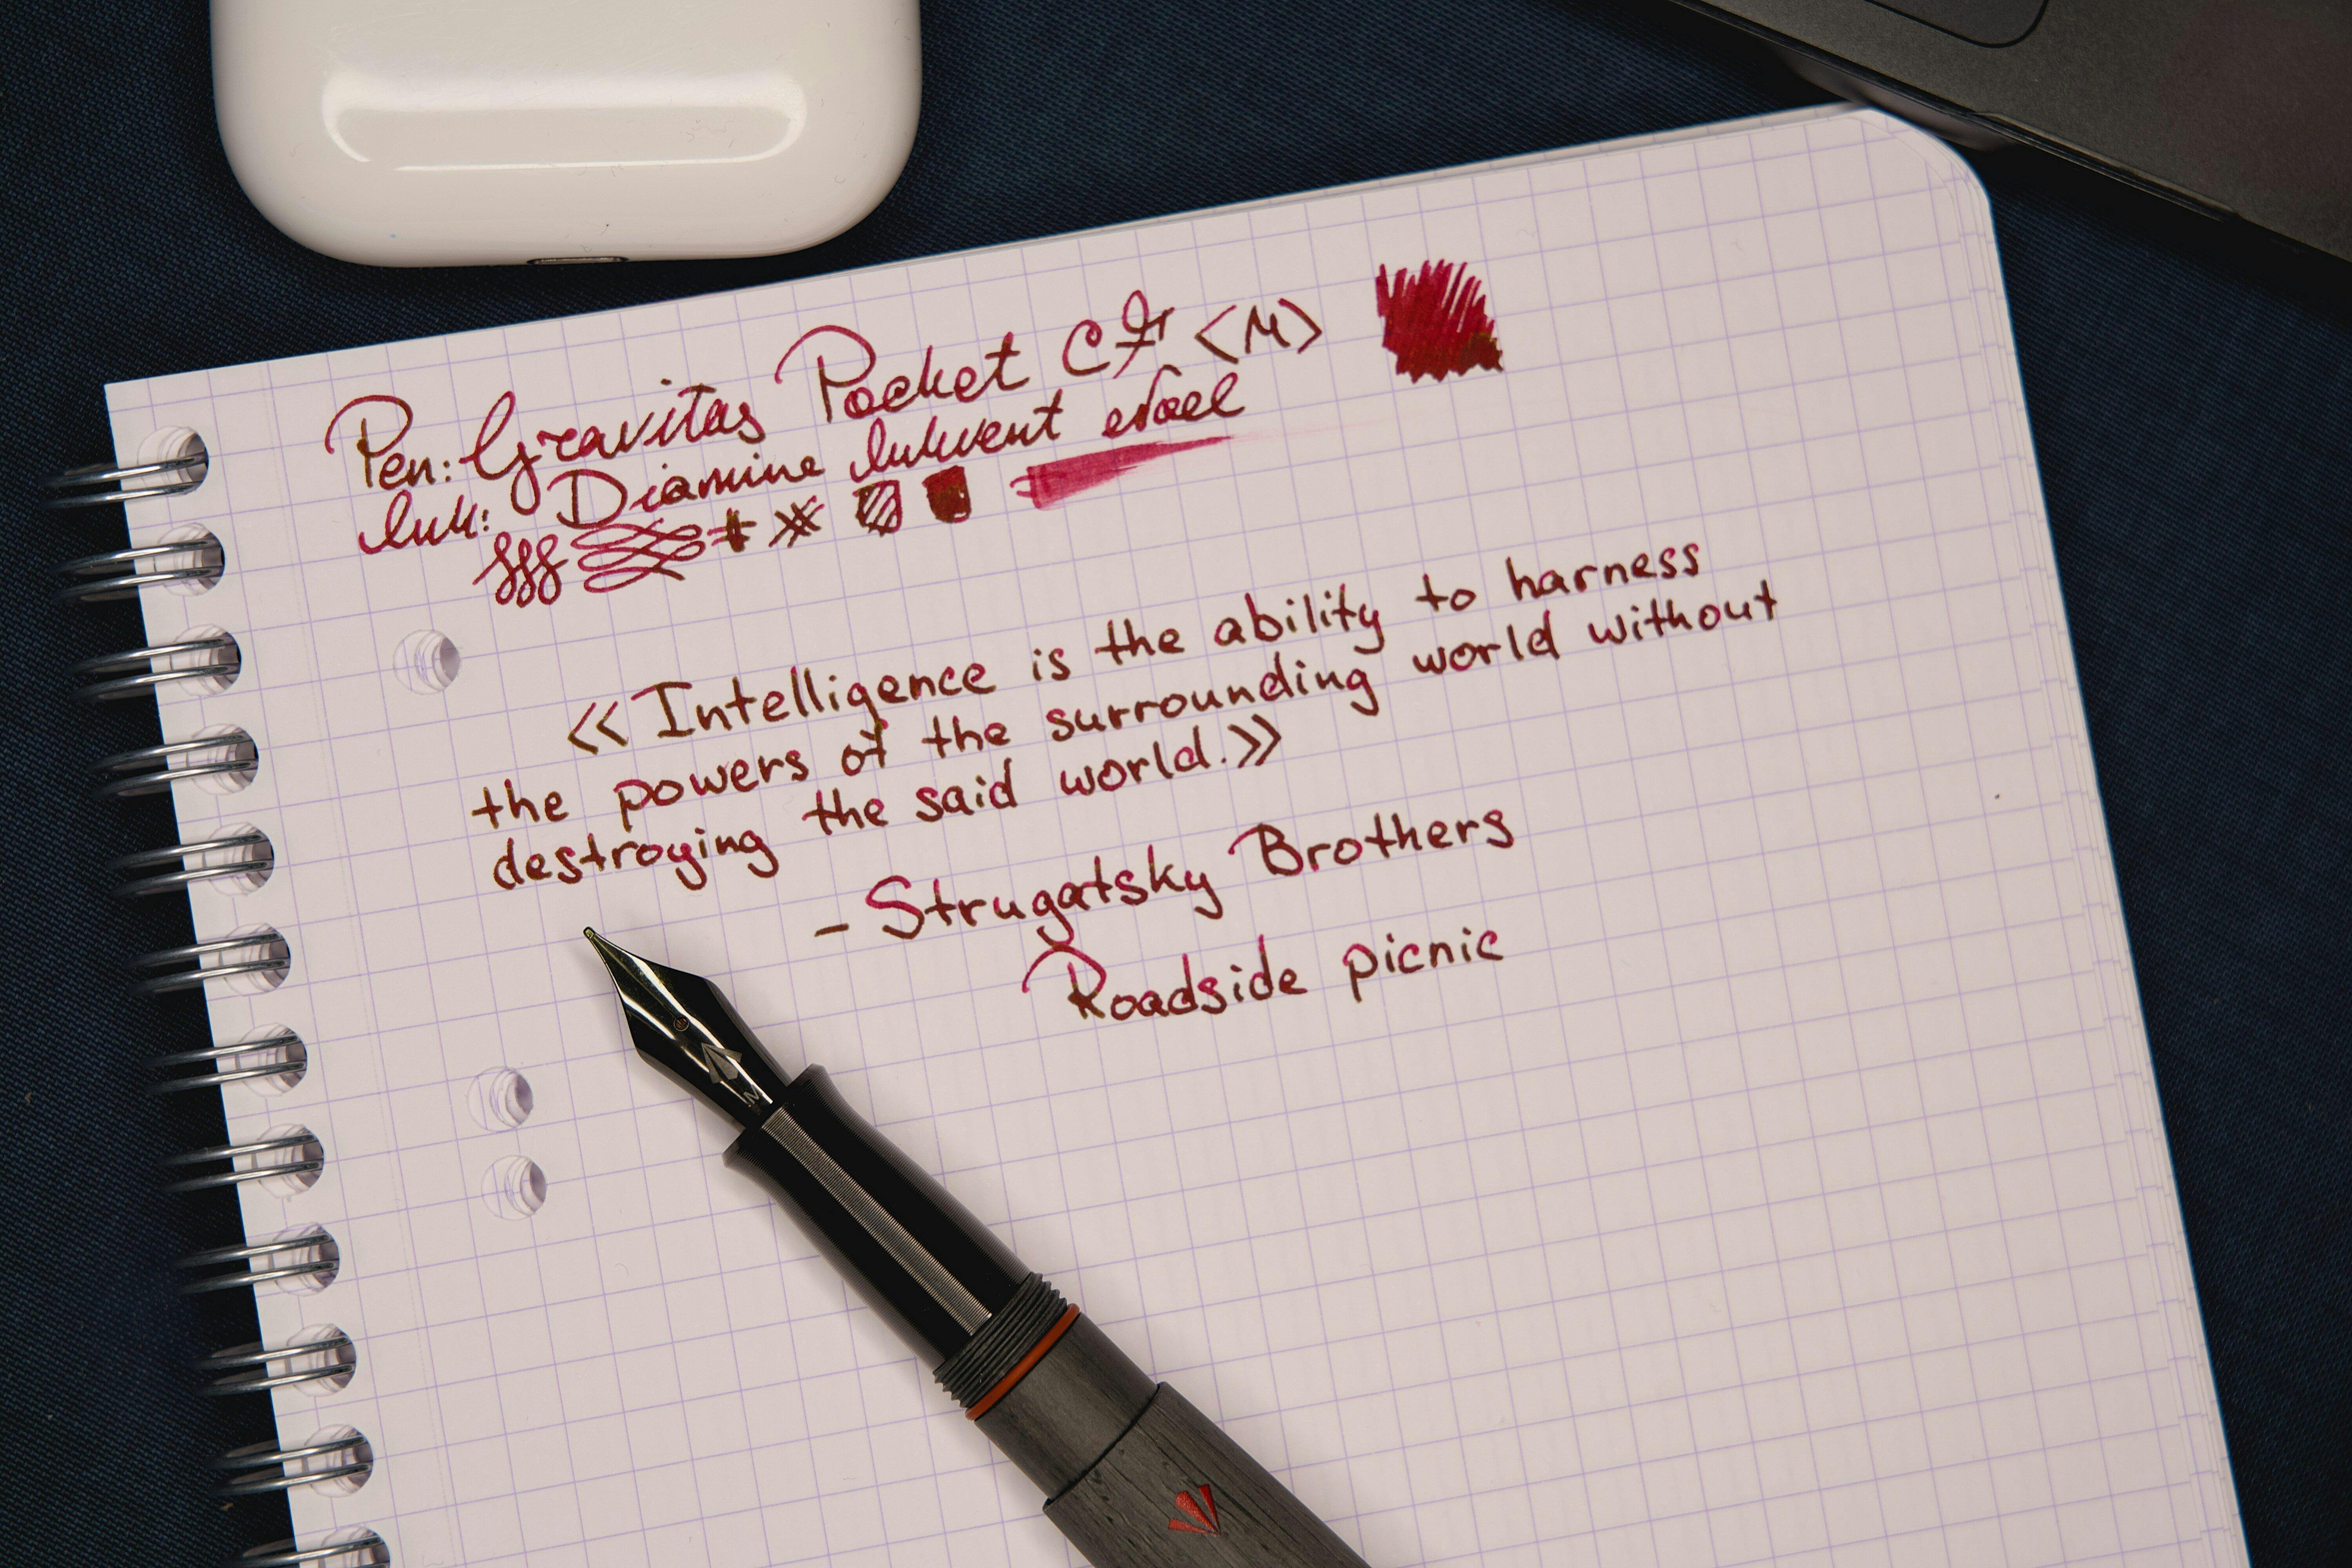 Pen: Gravitas Pocket CFr <M>
Ink: Diamine Inkvent Noel
<< Intelligence is the ability to harness
the powers of the surrounding world without
destroying the said world.>>
- Strugatsky Brothers
Roadside picnic
M